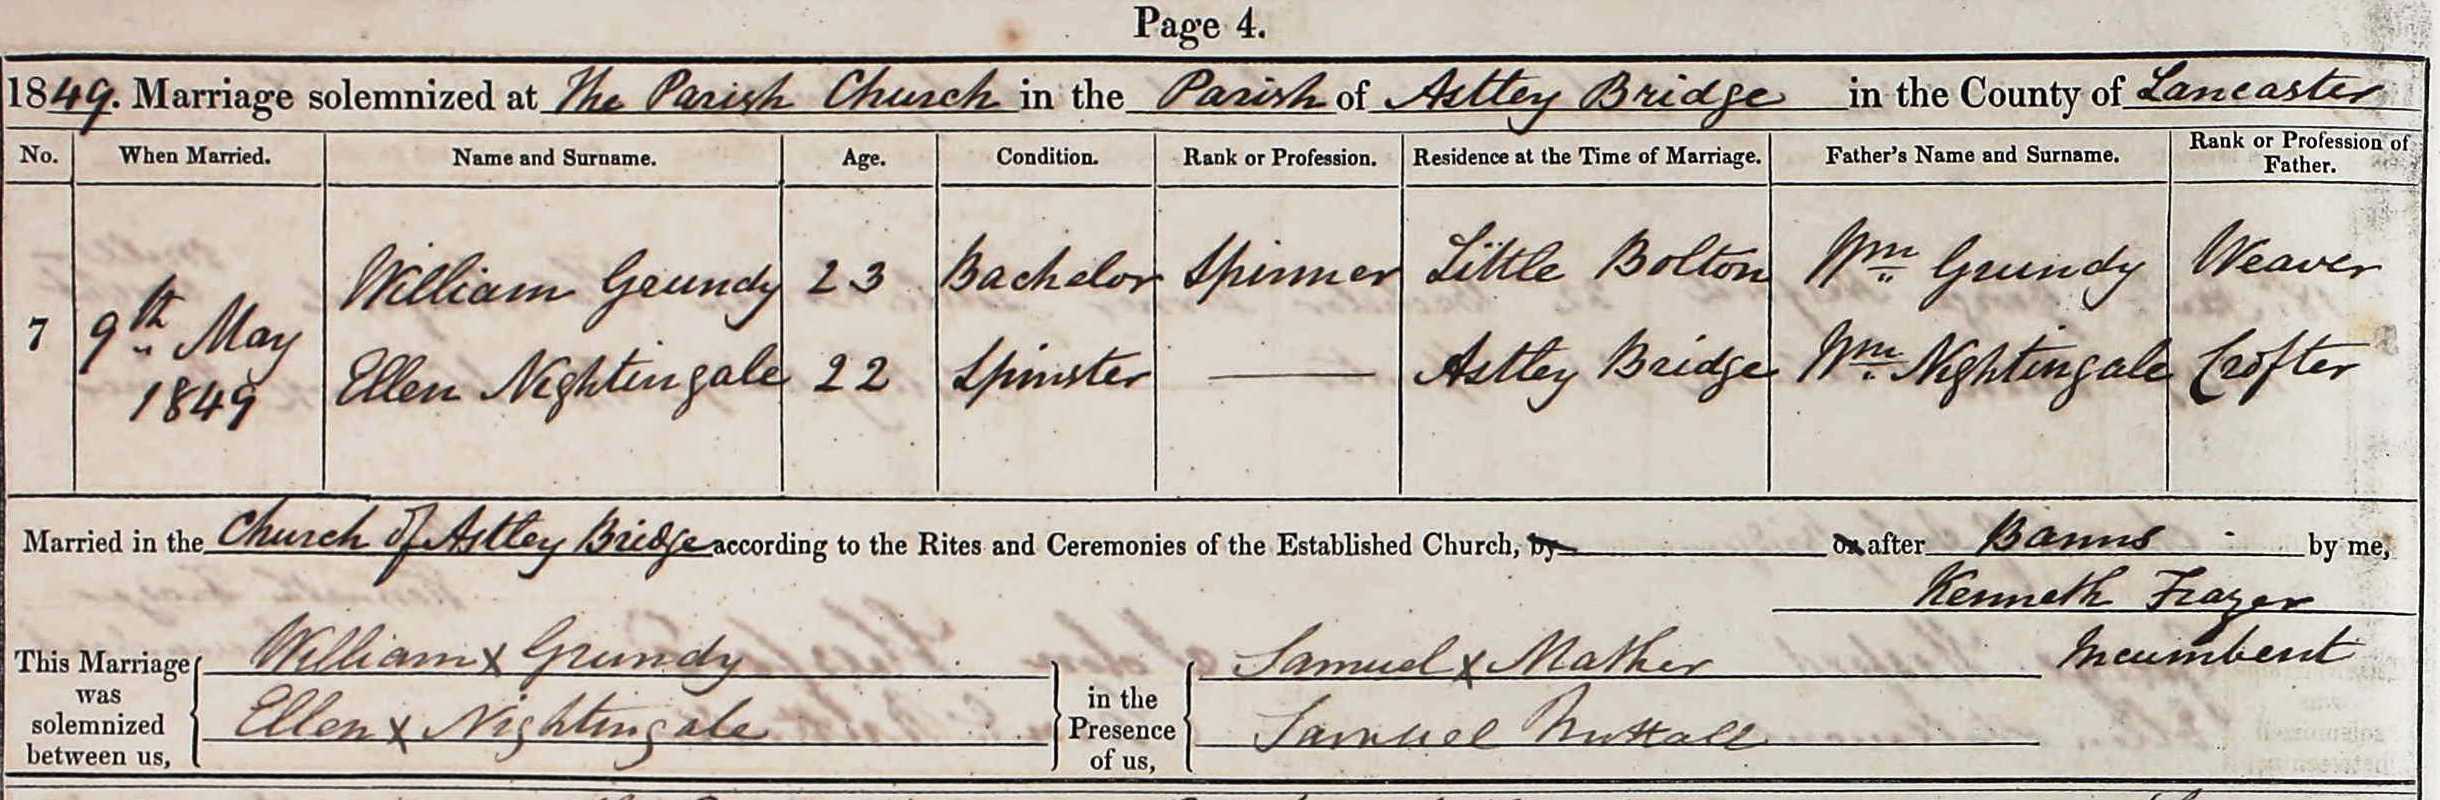 Page 4.
1849. Marriage solemnized at The Parish Church in the Parish of Astley Bridge in the County of Lancaster
No. When Married. Name and Surname. Age. Condition. Rank or Profession. Residence at the Time of Marriage. Father's Name and Surname. Rank or Profession of Father.
William Grundy 23 Bachelor Spinner Little Bolton Wm Grundy Weaver
7 9th May
1849
Ellen Nightingale 22 Spinster — Astley Bridge Wm Nightingale Crofter
Married in the Church of Astley Bridge according to the Rites and Ceremonies of the Established Church, by or after Banns by me,
Kenneth Frazer
Incumbent
This Marriage was solemnized between us,
William X Grundy
Ellen X Nightingale
in the Presence of us,
Samuel X Mather
Samuel Nuttall